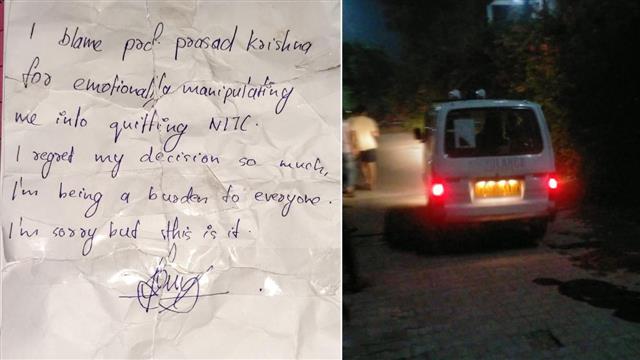 I blame prof. prasad krishna
for emotionally manipulating
me into quitting NITC.
I regret my decision so much,
I'm being a burden to everyone.
I'm sorry but this is it.
AMBULANCE